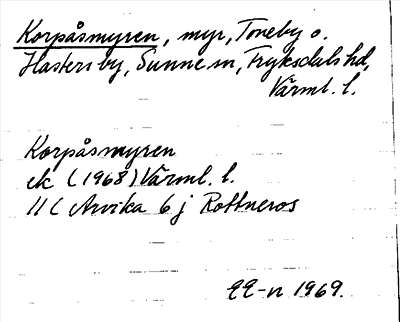 Korpåsmyren, myr, Toneby o.
Hastersby, Sunne sn, Fryksdals hd,
Värml. l.
Korpåsmyren
ek (1968) Värml. l.
11C Arvika 6 j Rottneros
EE-n 1969.